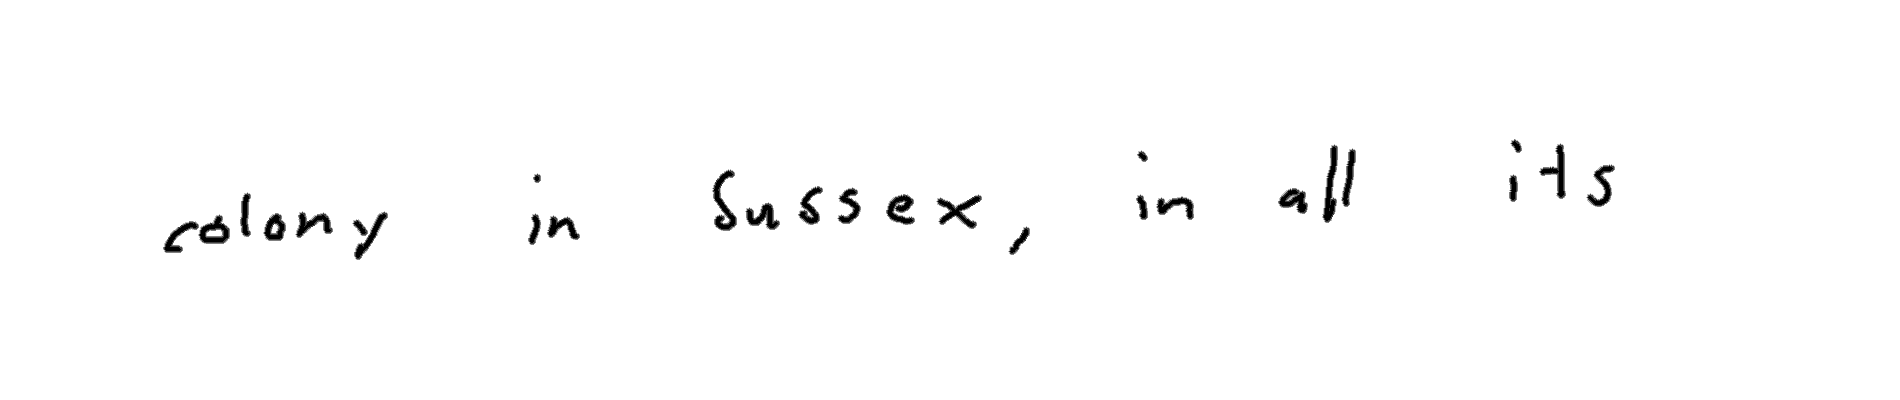 colony in Sussex, in all its